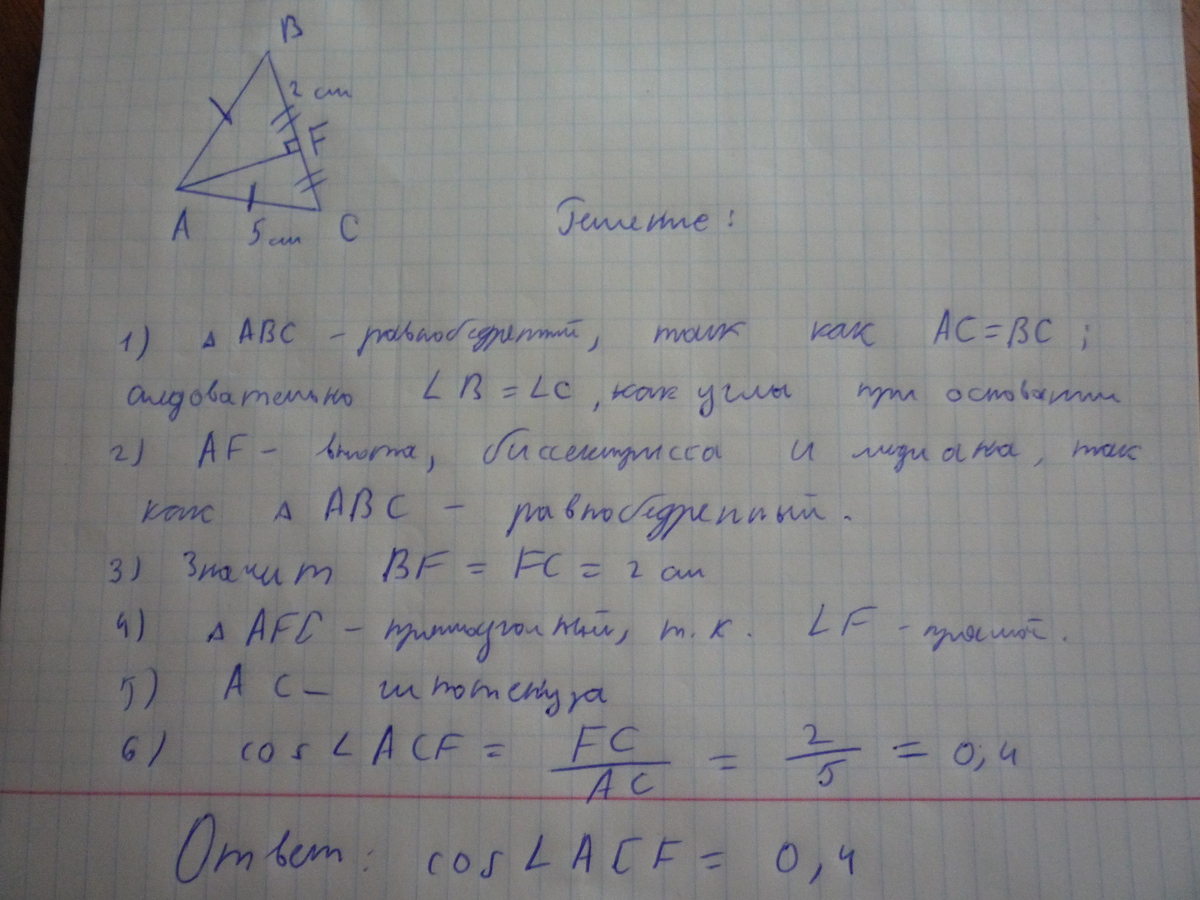 B
2 см
F
A
5 см
C
Решение:
1) △ ABC - равнобедренный, так как AC = BC;
следовательно ∠B = ∠C, как углы при основании
2) AF - высота, биссектрисса и медиана, так
как △ ABC - равнобедренный.
3) Значит BF = FC = 2 см
4) △ AFC - прямоугольный, т.к. ∠F - прямой.
5) AC - гипотенуза
6) cos ∠ ACF = FC/AC = 2/5 = 0,4
Ответ: cos ∠ ACF = 0,4